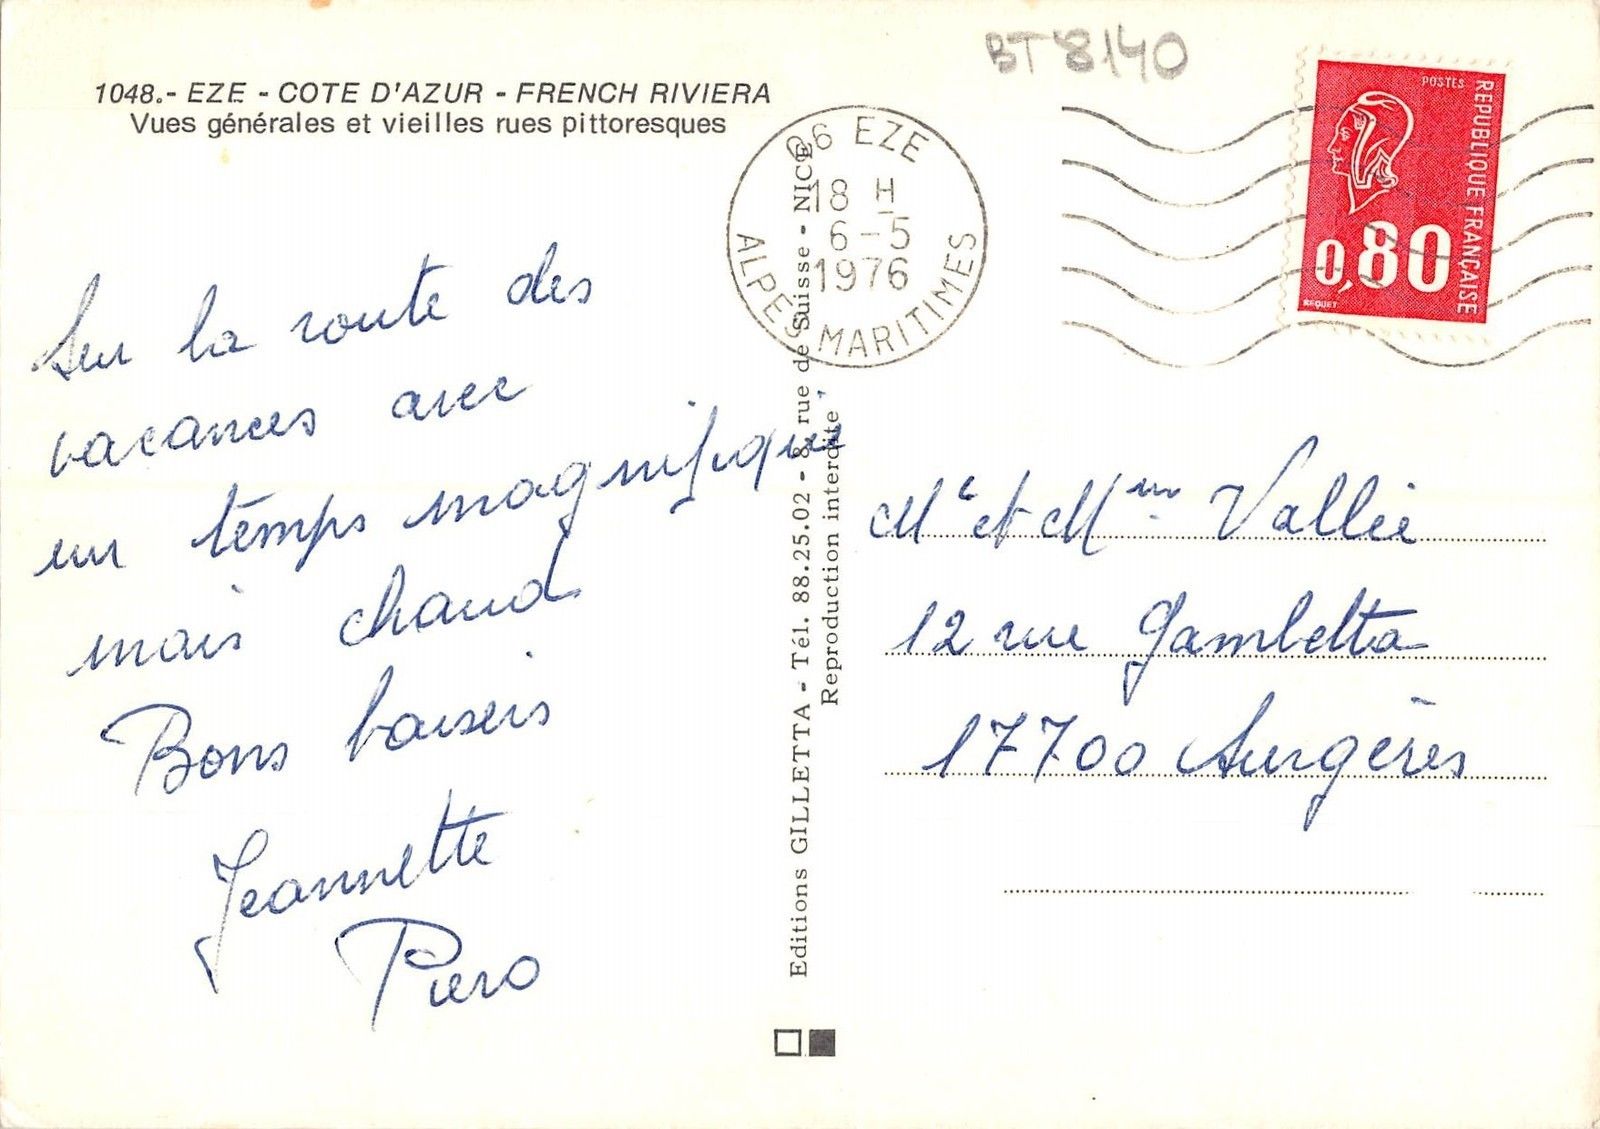 BT 8140
1048.- EZE - COTE D'AZUR - FRENCH RIVIERA
Vues générales et vieilles rues pittoresques
06 EZE
18 H
6-5
1976
ALPES MARITIMES
POSTES
REPUBLIQUE FRANÇAISE
0,80
BEQUET
Sur la route des
vacances avec
un temps magnifique
mais chaud
Bons baisers
Jeannette
Piero
Editions GILLETTA - Tél. 88.25.02 - 8, rue de Suisse - NICE
Reproduction interdite
Mr et Mme Vallée
12 rue Gambetta
17700 Surgères